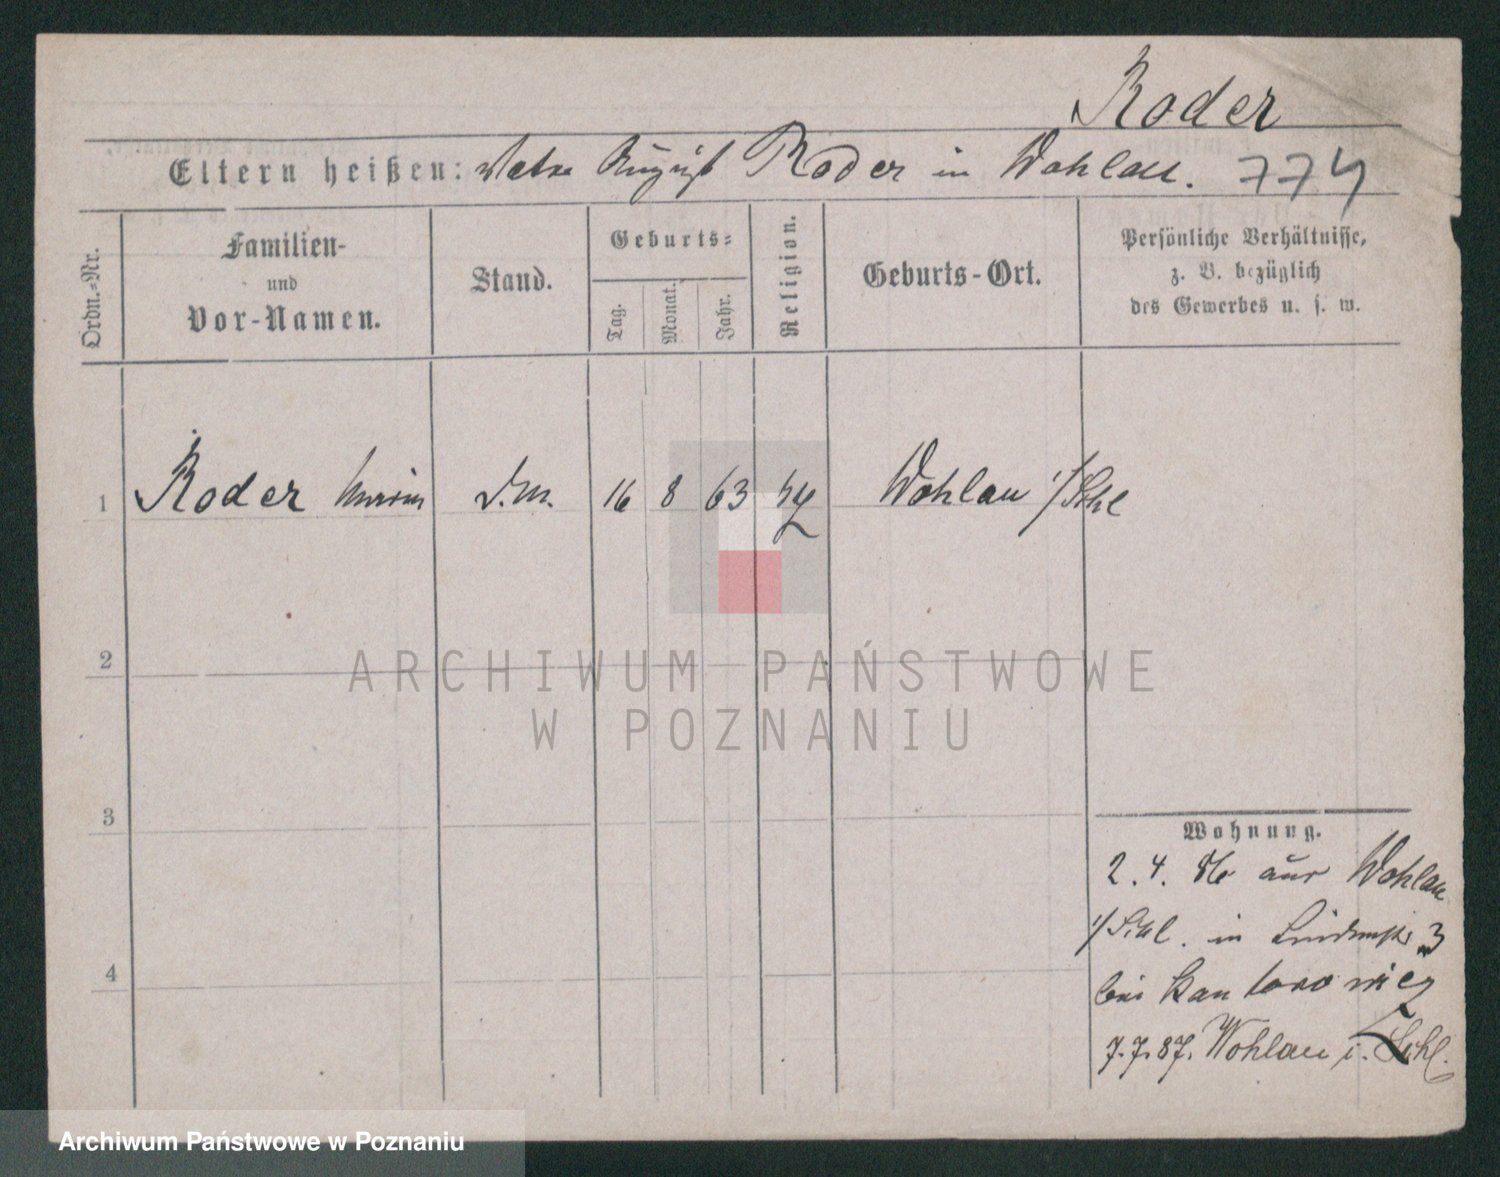 Roder
Eltern heißen: Vater August Roder in Wohlau. 774
Ordn.-Nr.
Familien-
und
Vor-Namen.
Stand.
Geburts-
Tag.
Monat.
Jahr.
Religion.
Geburts-Ort.
Persönliche Verhältnisse,
z. B. bezüglich
des Gewerbes u. s. w.
1 Roder 16 8 63 Wohlau i/Schl
2
ARCHIWUM PAŃSTWOWE
W POZNANIU
3
Wohnung.
2. 4. 86 aus Wohlau
i/Schl. in Lindenstr 3
bei Kantorowicz
4
7. 7. 87. Wohlau i. Schl.
Archiwum Państwowe w Poznaniu